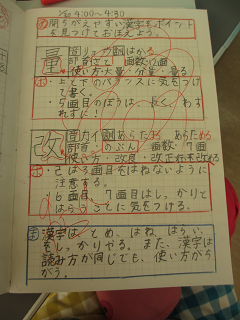 4:00〜4:30
間ちがえやすい漢字をポイント
を見つけておぼえよう。
量
音リョウ 訓はかる
部首 里 画数12画
使い方 大量・分量・量る
ポ・上と下のバランスに気をつけ
て書く。
・5画目のぼうは、長く。わす
れずに!
改
音カイ 訓あらためる あらたまる
部首 のぶん 画数 7画
使い方・改良・改正・年を改める
ポ・己は3画目をはねないように
注意する。
・6画目、7画目はしっかりと
はらうことに気をつける。
漢字は、とめ、はね、はらい、
をしっかりやる。また、漢字は
読み方が同じでも、使い方がち
がう。